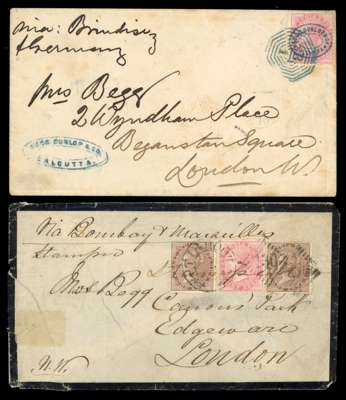 via: Brindisi &
Germany
Mrs Begg
2 Wyndham Place
Bryanston Square
London W.
BEGG DUNLOP & CO.
CALCUTTA
Via Bombay & Marseilles
Stamps
Mrs Begg
Canons Park
Edgeware
London
N.W.